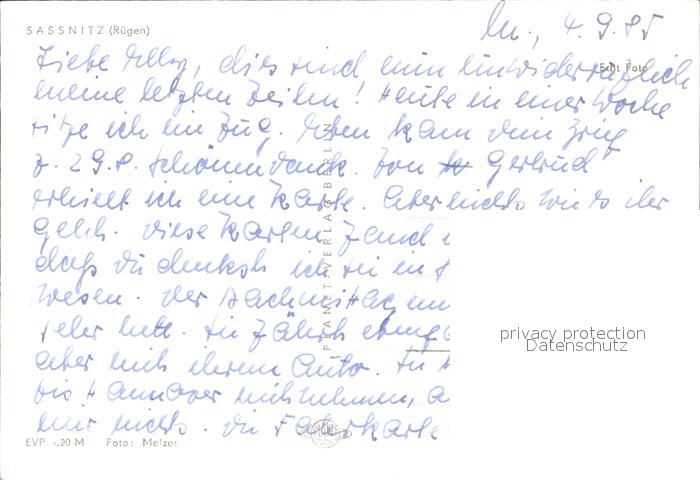 SASSNITZ (Rügen)
4.9.85
Echt Foto
Liebe Elly, dies sind nun unwiderruflich
meine letzten Zeilen! Heute in einer Woche
sitze ich im Zug. Eben kam dein Brief
v. 29.8. schönen dank. Von Gertrud
erhielt ich eine Karte. Aber nichts
diese Karten
daß du denkst ich sei in
wesen. der Nachmittag
Sie fährt
aber mit ihrem Auto.
bis Hannover mitnehmen, a
mir nichts. die Fahrkarte
PLANET-VERLAG BERLIN
privacy protection
Datenschutz
EVP -,20 M Foto: Melzer